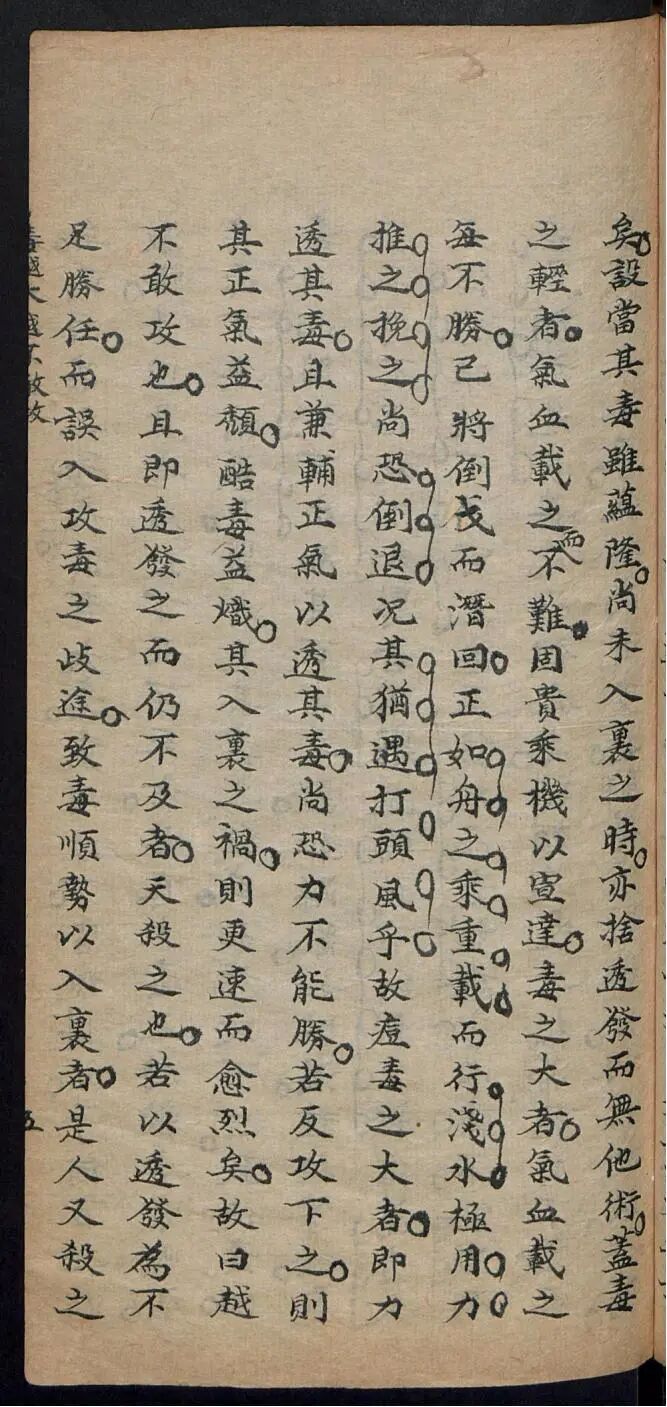 矣設當其毒雖蘊隆尚未入裏之時亦捨透發而無他術蓋毒
之輕者氣血載之而不難固貴乘機以宣達毒之大者氣血載之
每不勝已將倒戈而潛回正如舟之乘重載而行淺水極用力
推之挽之尚恐倒退況其猶遇打頭風乎故痘毒之大者即力
透其毒且兼輔正氣以透其毒尚恐力不能勝若反攻下之則
其正氣益頹酷毒益熾其入裏之禍則更速而愈烈矣故曰越
不敢攻也且即透發之而仍不及者天殺之也若以透發為不
足勝任而誤入攻毒之歧途致毒順勢以入裏者是人又殺之
毒越大越不敢攻
五